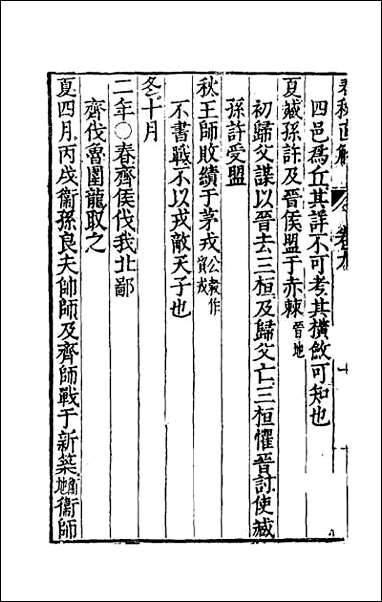 春秋直解 卷九 十一
四邑爲丘其詳不可考其橫斂可知也
夏臧孫許及晉侯盟于赤棘晉地
初歸父謀以晉去三桓及歸父亡三桓懼晉討使臧
孫許受盟
秋王師敗績于茅戎公穀作貿戎
不書戰不以戎敵天子也
冬十月
二年〇春齊侯伐我北鄙
齊伐魯圍龍取之
夏四月丙戌衞孫良夫帥師及齊師戰于新築衞地衞師